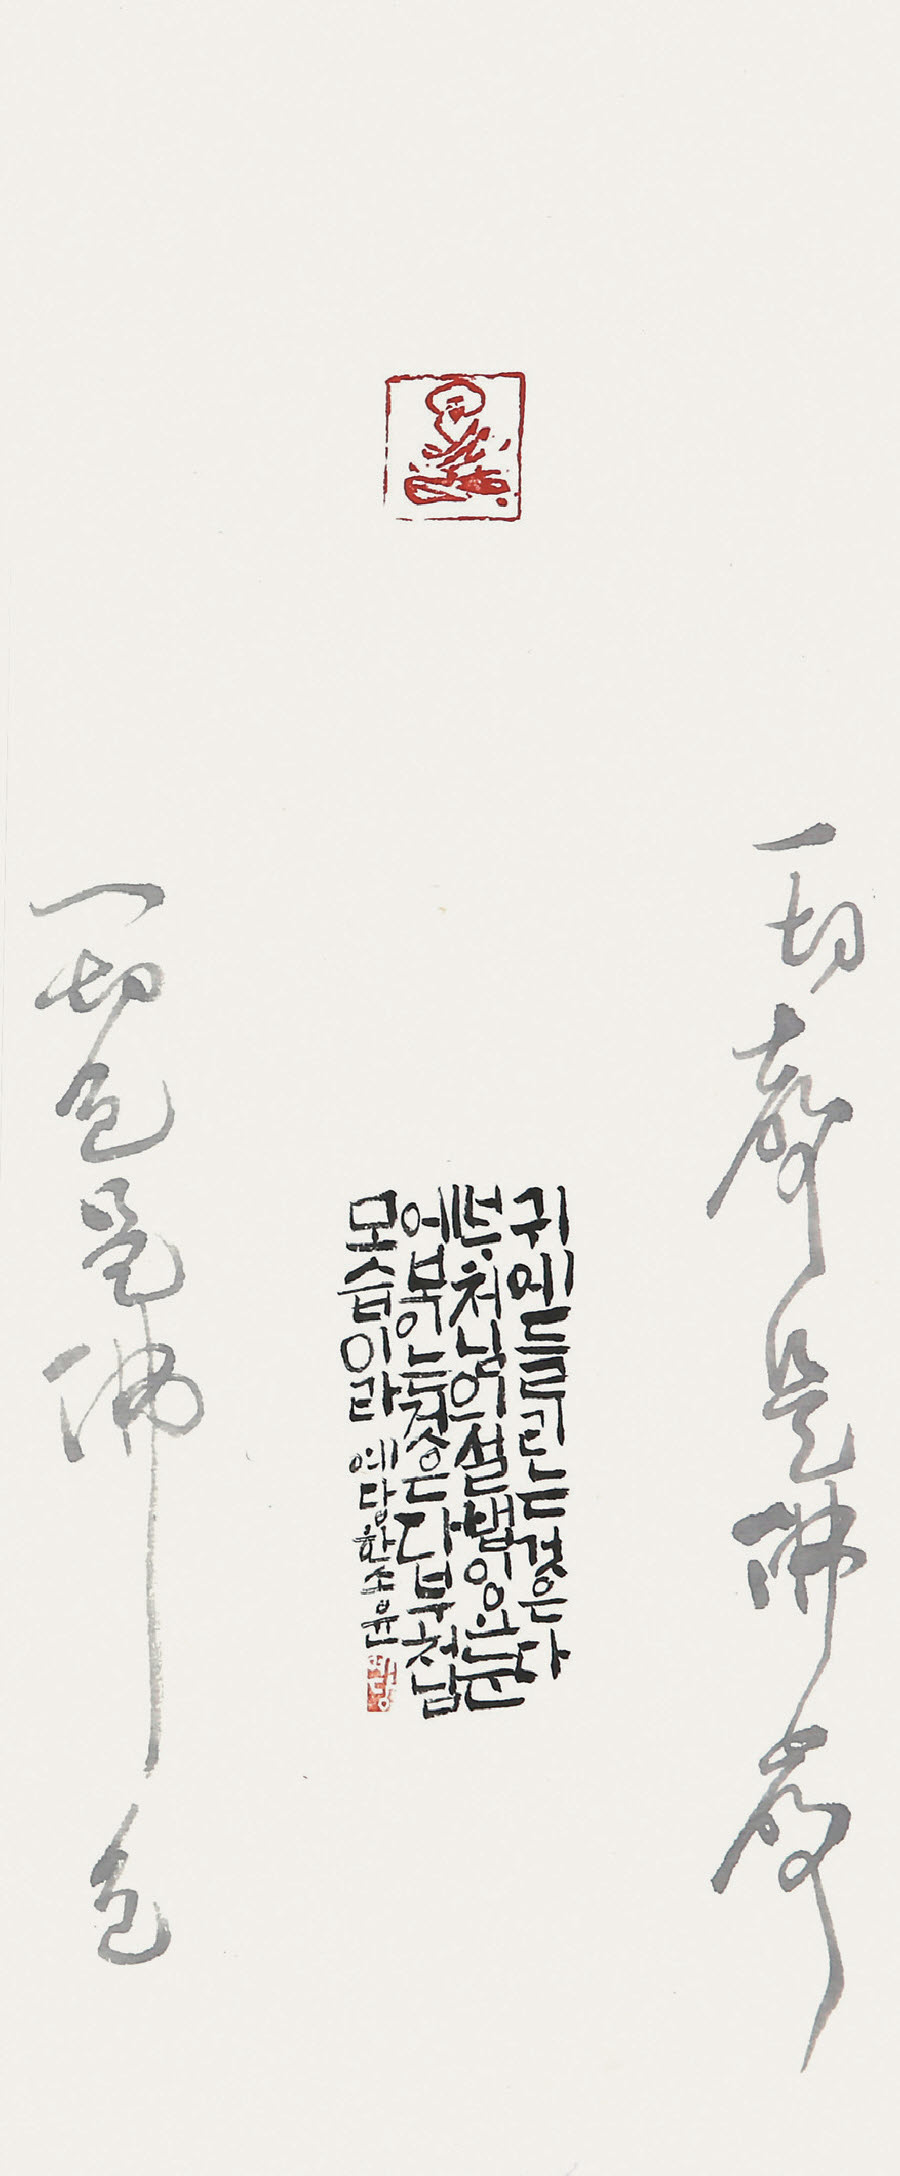 一切聲是佛聲
귀에들리는것은다
부처님의설법이요눈
에보이는것은다부처님
모습이라 예당한소윤
一切色是佛色